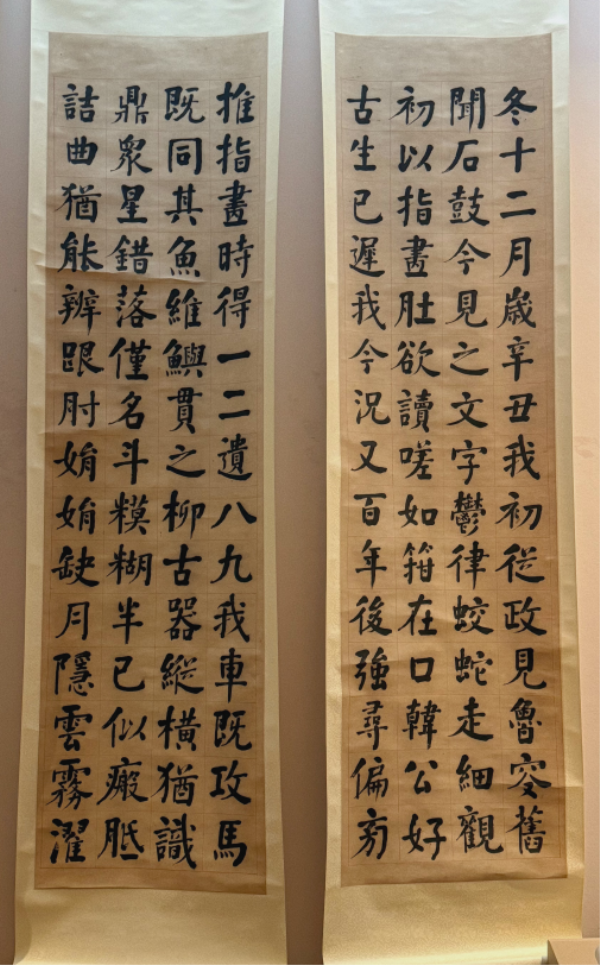 冬十二月歲辛丑我初從政見魯叟舊
聞石鼓今見之文字鬱律蛟蛇走細觀
初以指畫肚欲讀嗟如箝在口韓公好
古生已遲我今況又百年後強尋偏旁
推指畫時得一二遺八九我車既攻馬
既同其魚維鱮貫之柳古器縱橫猶識
鼎衆星錯落僅名斗糢糊半已似瘢胝
詰曲猶能辨跟肘娟娟缺月隱雲霧濯